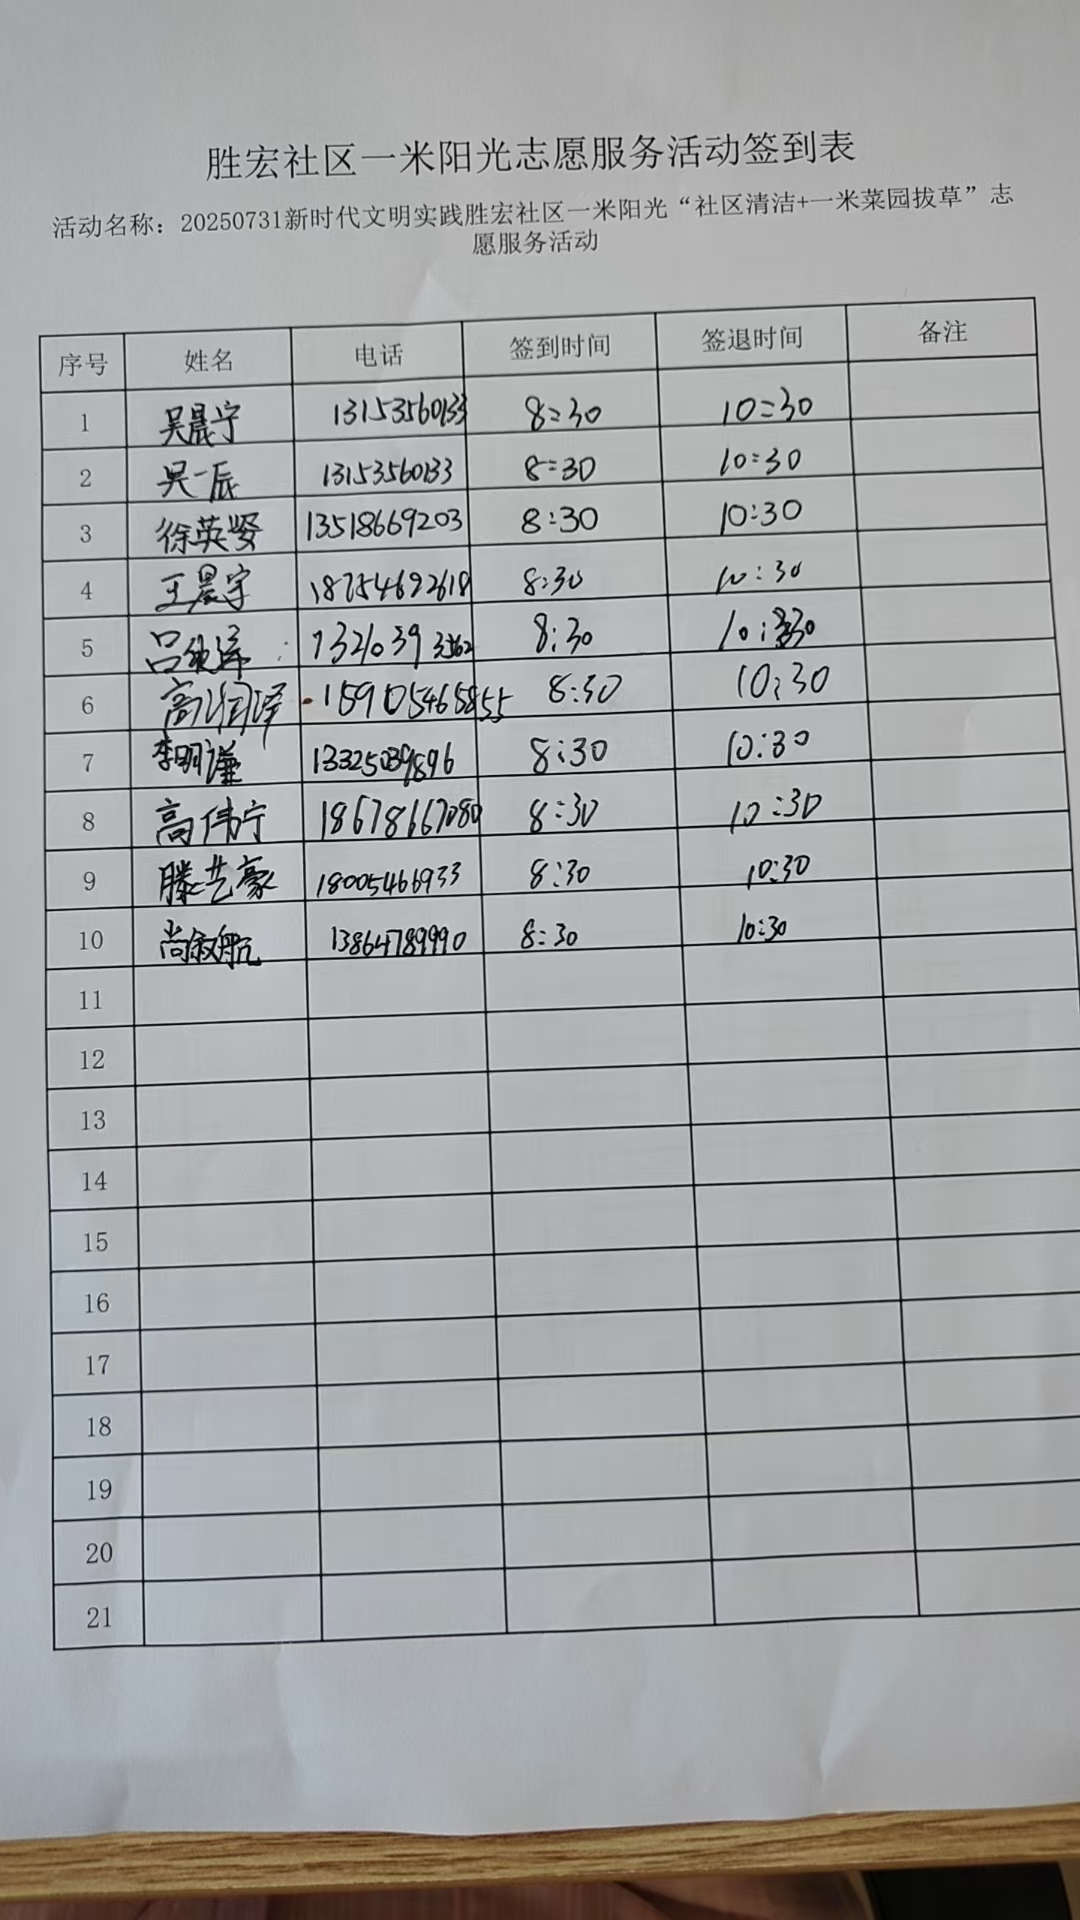 胜宏社区一米阳光志愿服务活动签到表
活动名称：20250731新时代文明实践胜宏社区一米阳光“社区清洁+一米菜园拔草”志
愿服务活动
序号 姓名 电话 签到时间 签退时间 备注
1 吴晨宁 13153560133 8:30 10:30
2 吴一辰 13153560133 8:30 10:30
3 徐英贤 13518669203 8:30 10:30
4 王晨宇 18754692619 8:30 10:30
5 吕 8:30 10:30
6 高润泽 15910546 8:30 10:30
7 李明谦 13325039896 8:30 10:30
8 高伟宁 18678667080 8:30 10:30
9 滕艺豪 18005466933 8:30 10:30
10 尚叙航 13864789990 8:30 10:30
11
12
13
14
15
16
17
18
19
20
21